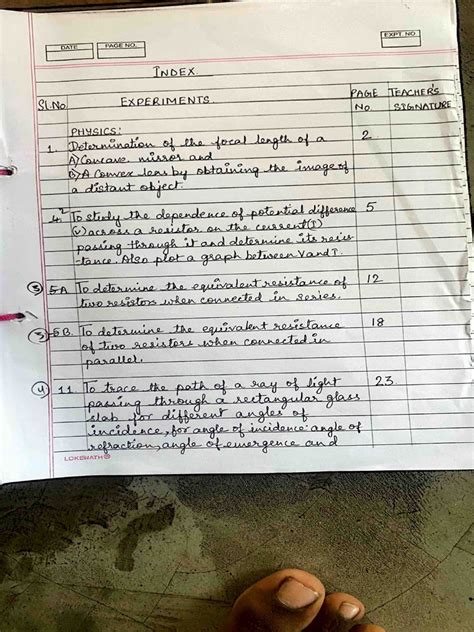 DATE
PAGE NO.
EXPT. NO.
INDEX.
Sl.No. EXPERIMENTS. PAGE No TEACHER'S SIGNATURE
PHYSICS:
1. Determination of the focal length of a 2
A) Concave mirror and
B) A Convex lens by obtaining the image of
a distant object.
2 To study the dependence of potential difference 5
(V) across a resistor on the current (I)
passing through it and determine its resis-
-tance. Also plot a graph between V and I.
3 5A. To determine the equivalent resistance of 12
two resistors when connected in series.
5B. To determine the equivalent resistance 18
of two resistors when connected in
parallel.
4 11. To trace the path of a ray of light 23
passing through a rectangular glass
slab for different angles of
incidence, for angle of incidence angle of
refraction, angle of emergence and
LOKENATH